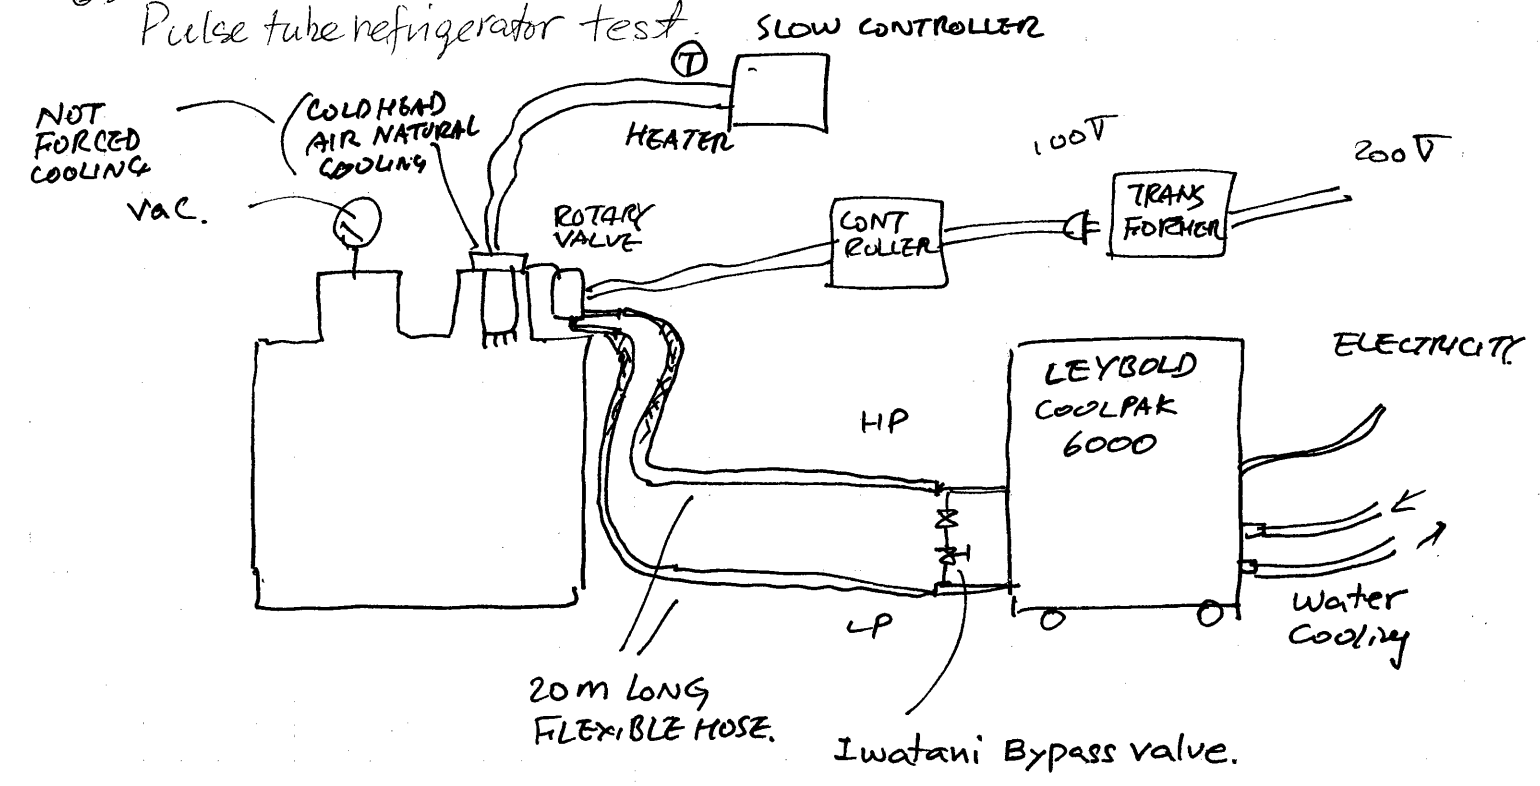 Pulse tube refrigerator test.
SLOW CONTROLLER
T
NOT
FORCED
COOLING
COLD HEAD
AIR NATURAL
COOLING
HEATER
vac.
ROTARY
VALVE
CONT
ROLLER
100V
TRANS
FORMER
200V
ELECTRICITY
LEYBOLD
COOLPAK
6000
HP
LP
Water
Cooling
20m LONG
FLEXIBLE HOSE.
Iwatani Bypass valve.